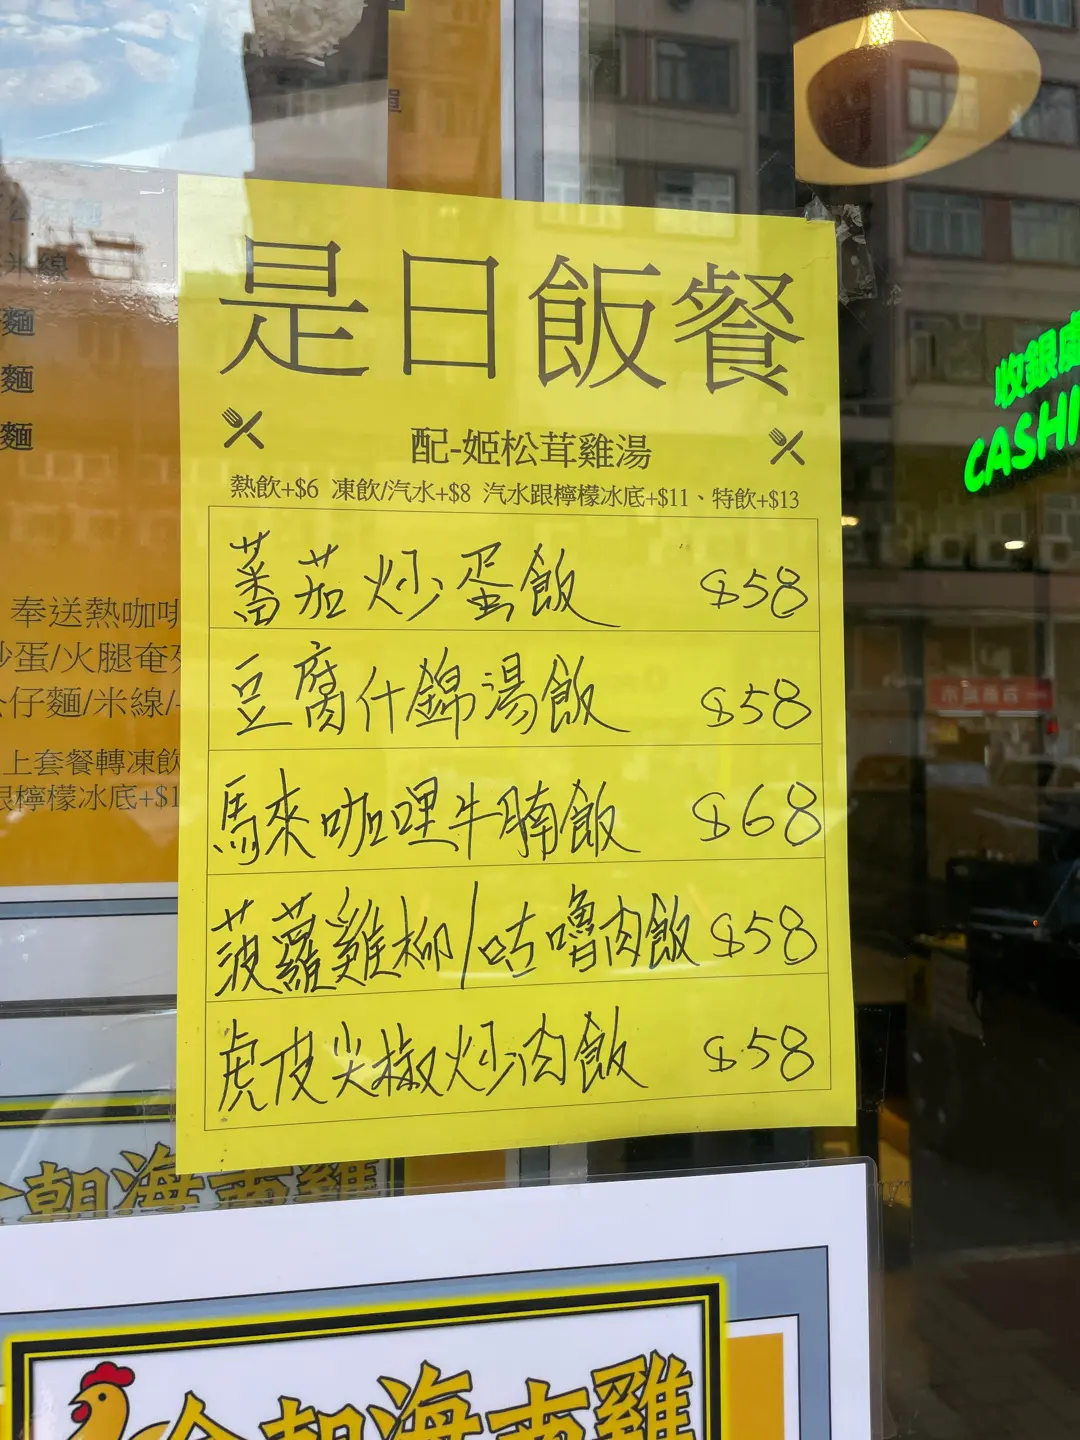 是日飯餐
配-姬松茸雞湯
熱飲+$6 凍飲/汽水+$8 汽水跟檸檬冰底+$11、特飲+$13
蕃茄炒蛋飯 $58
豆腐什錦湯飯 $58
馬來咖哩牛腩飯 $68
菠蘿雞柳/咕嚕肉飯 $58
虎皮尖椒炒肉飯 $58
米線
麵
麵
麵
奉送熱咖啡
炒蛋/火腿奄列
公仔麵/米線/
上套餐轉凍飲
跟檸檬冰底+$1
收銀處
CASHI
朝海南雞
朝海南雞